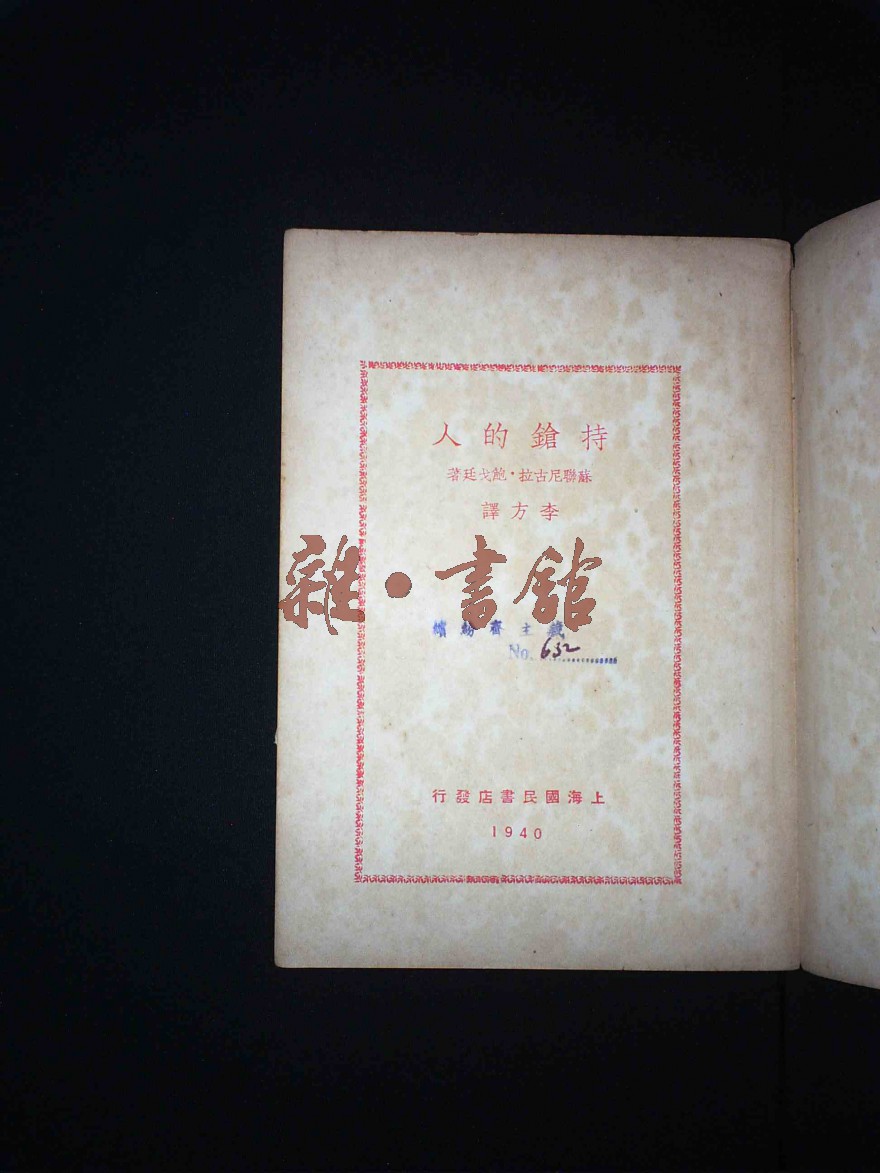 持鎗的人
蘇聯尼古拉・飽戈廷著
李方譯
雜・書館
繽紛齋主藏
No. 632
上海國民書店發行
1940